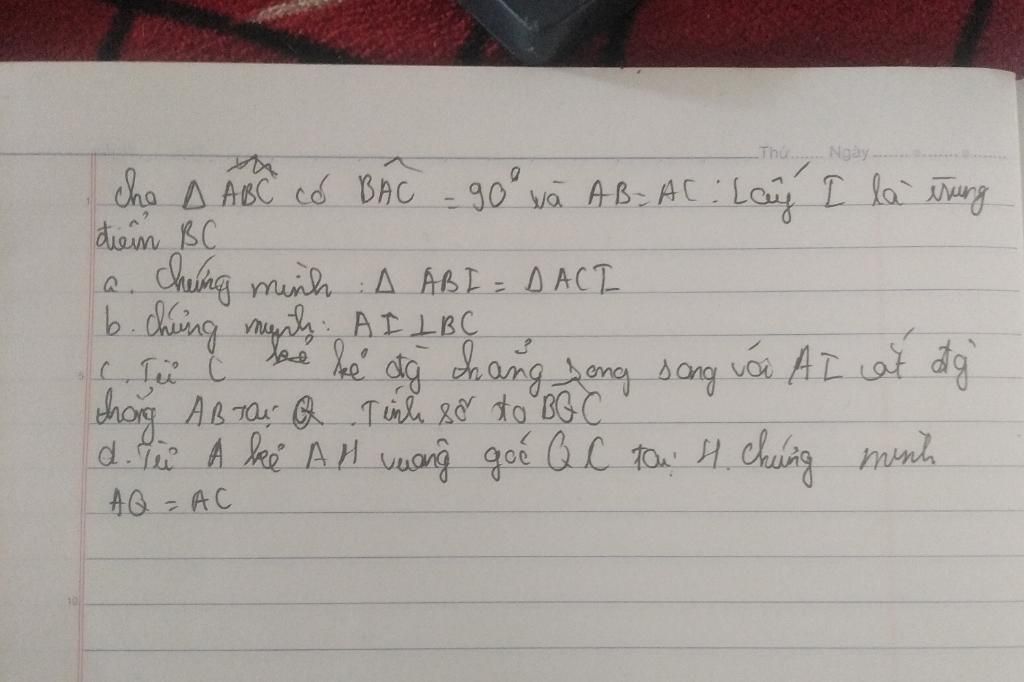 Thứ...... Ngày...............
Cho Δ ABC có BAC = 90° và AB = AC : Lấy I là trung
điểm BC
a. Chứng minh : Δ ABI = Δ ACI
b. Chứng minh : AI ⊥ BC
c. Từ C kẻ đg thẳng song song với AI cắt đg
thẳng AB tại Q. Tính số đo BQC
d. Từ A kẻ AH vuông góc QC tại H. Chứng minh
AQ = AC
10